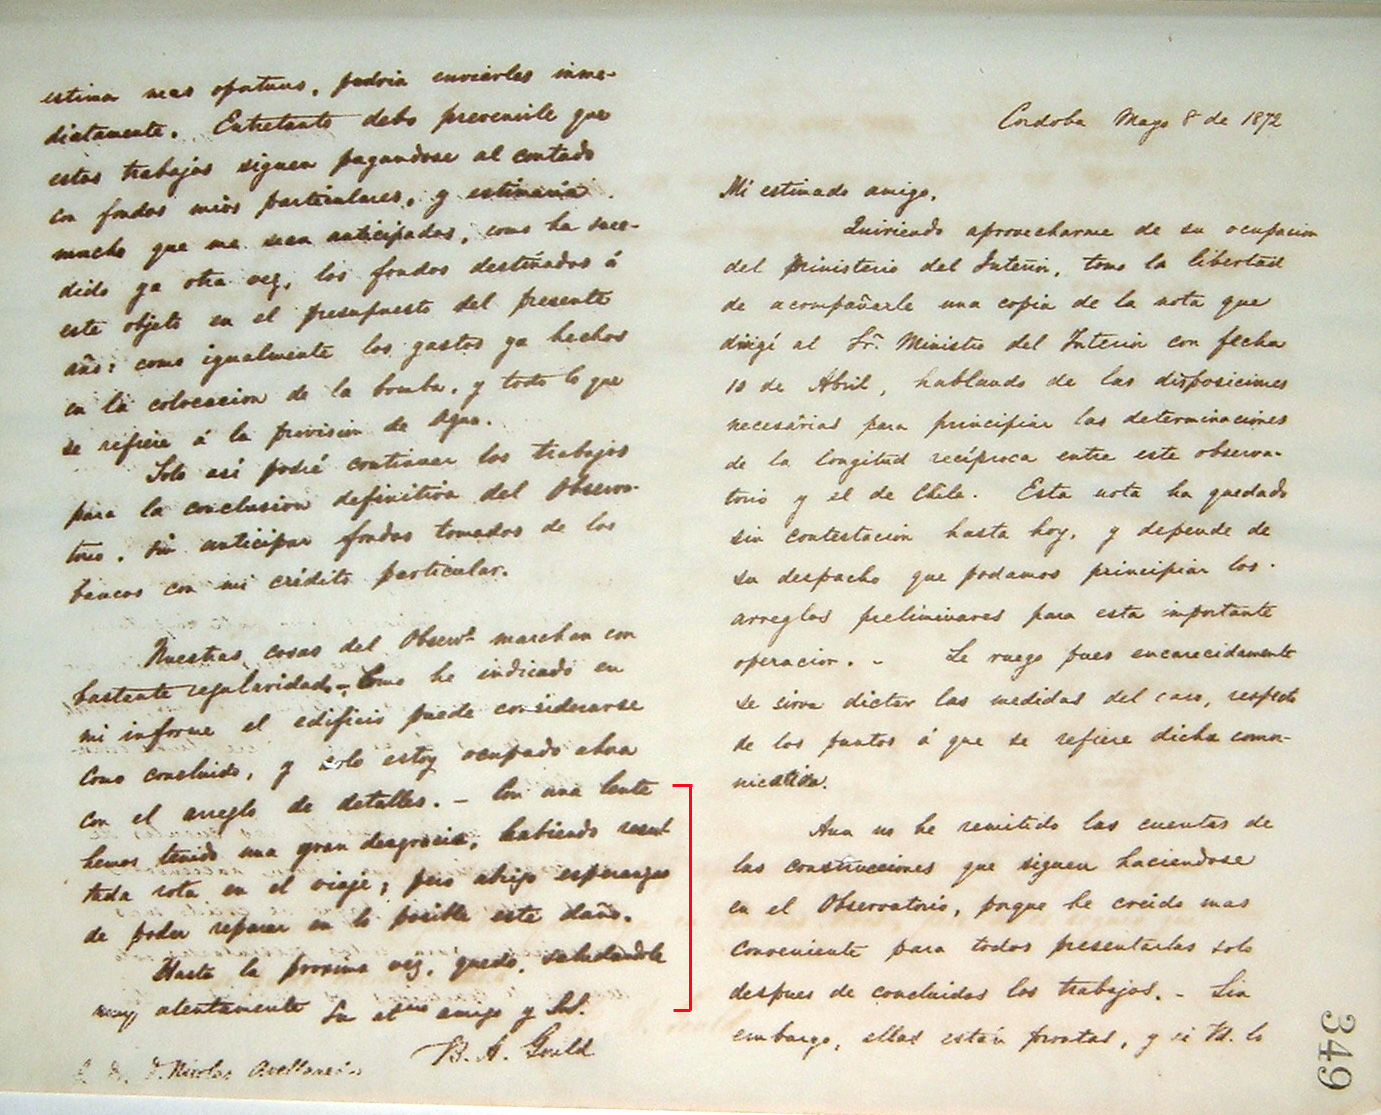 Cordoba Mayo 8 de 1872
Mi estimado amigo,
Quiriendo aprovecharme de su ocupacion
del Ministerio del Interior, tomo la libertad
de acompañarle una copia de la nota que
dirigí al Sr. Ministro del Interior con fecha
10 de Abril, hablando de las disposiciones
necesárias para principiar las determinaciones
de la longitud recíproca entre este observa-
torio y el de Chile. Esta nota ha quedado
sin contestacion hasta hoy, y depende de
su despacho que podamos principiar los
arreglos preliminares para esta importante
operacion. - Le ruego pues encarecidamente
se sirva dictar las medidas del caso, respecto
de los puntos á que se refiere dicha comu-
Aun no he remitido las cuentas de
las construcciones que siguen haciendose
en el Observatorio, porque he creido mas
conveniente para todos presentarlas solo
despues de concluidos los trabajos. - Sin
embargo, ellas están prontas, y si Vd. lo
349
estima mas oportuno, podria enviarles inme-
diatamente. Entretanto debo prevenirle que
estos trabajos siguen pagandose al contado
con fondos mios particulares, y estimaria
mucho que me sean anticipados, como ha suce-
dido ya otra vez, los fondos destinados á
este objeto en el presupuesto del presente
año: como igualmente los gastos ya hechos
en la colocacion de la bomba, y todo lo que
se refiere á la provision de Agua.
Solo asi podré continuar los trabajos
para la conclusion definitiva del Observa-
torio, sin anticipar fondos tomados de los
bancos con mi crédito particular.
Nuestras cosas del Observo. marchan con
bastante regularidad - Como he indicado en
mi informe el edificio puede considerarse
como concluido, y solo estoy ocupado ahora
con el arreglo de detalles. - Con una lente
hemos tenido una gran desgracia, habiendo resul
tada rota en el viaje; pero abrigo esperanzas
de poder reparar en lo posible este daño.
Hasta la proxima vez, quedo, saludandole
muy atentamente Su atmo amigo y S.S.
B. A. Gould
D. Nicolas Avellaneda